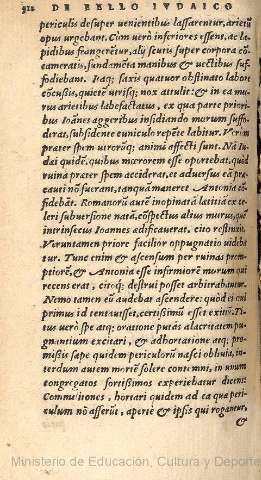 912 DE BELLO IVDAICO
periculis desuper uenientibus lassarentur, arietū
opus urgebant. Cum verò inferiores essent, ac la
pidibus frangerētur, alij scutis super corpora cō
cameratis, fundamēta manibus & uectibus suf
fodiebant. Itaq; saxis quatuor obstinato labore
cōcussis, quietē utrisq; nox attulit: & in ea mu
rus arietibus labefactatus, ex qua parte priori
bus Ioānes aggeribus insidiando murum suffo
derat, subsidente cuniculo repēte labitur.
præter spem utrorūq; animi affecti sunt. Nā Iu
dæi quidē, quibus mœrorem esse oportebat, quòd
ruina præter spem acciderat, et aduersus eā præ
cauti nō fuerant, tanquā maneret Antonia cō
fidebāt. Romanorū autē inopinatā lætitiā ex ce
leri subuersione natā, cōspectus alius murus, quē
intrinsecus Ioannes ædificauerat, cito restinxit.
Veruntamen priore facilior oppugnatio uideba
tur. Tunc enim & ascensum per ruinas prom
ptiorē, & Antonia esse infirmiorē murum qui
recens erat, citoq; destrui posset arbitrabantur.
Nemo tamen eū audebat ascendere: quòd ei qui
primus id tentauisset, certissimū esset exitiū. Ti
tus verò spe atq; oratione putās alacritatem pu
gnantium excitari, & adhortatione atq; pro
missis sæpe quidem periculorū nasci obliuia, in
terdum autem mortē solere contemni, in unum
congregatos fortissimos experiebatur dicens:
Commilitones, hortari quidem ad ea quæ peri
culum nō afferūt, apertè & ipsis qui rogantur,
&
Ministerio de Educación, Cultura y Deporte